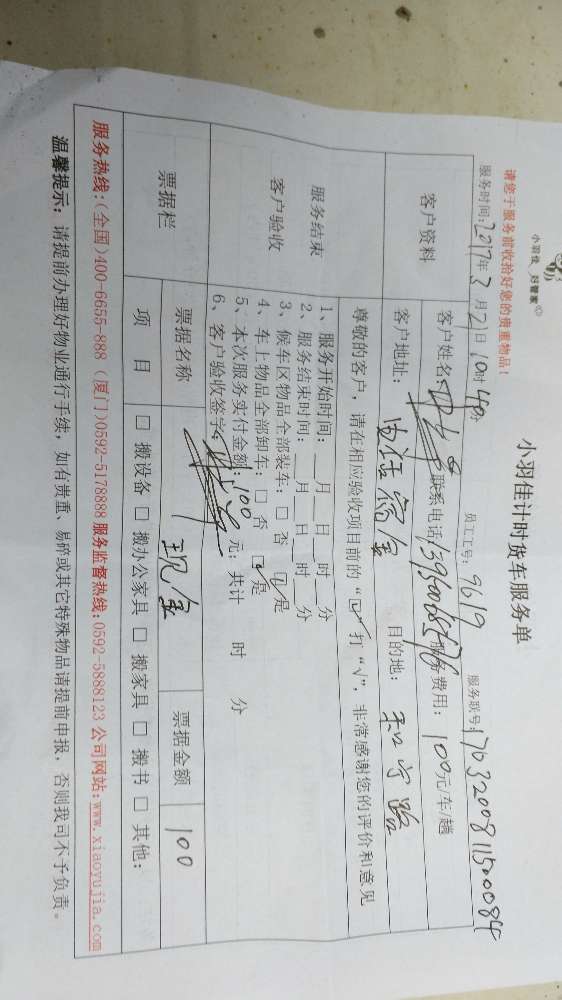 小羽佳 好管家
小羽佳计时货车服务单
请您于服务前收拾好您的贵重物品!
服务时间: 2017年3月21日10时40分 员工工号: 9619 服务联号: 1703200811500084
客户资料
客户姓名: 联系电话: 服务费用: 100元/车/趟
客户地址: 目的地:
尊敬的客户，请在相应验收项目前的“☑”打“√”，非常感谢您的评价和意见
服务结束
客户验收
1、服务开始时间: __月__日__时__分
2、服务结束时间: __月__日__时__分
3、候车区物品全部装车: □ 否 ☑ 是
4、车上物品全部卸车: □ 否 ☑ 是
5、本次服务实付金额 100 元; 共计 时 分
6、客户验收签字:
票据栏 票据名称 现金 票据金额 100
项 目 □ 搬设备 □ 搬办公家具 □ 搬家具 □ 搬书 □ 其他:
服务热线:(全国)400-6655-888 (厦门)0592-5178888 服务监督热线:0592-5888123 公司网站:www.xiaoyujia.com
温馨提示: 请提前办理好物业通行手续, 如有贵重、易碎或其它特殊物品请提前申报, 否则我司不予负责。